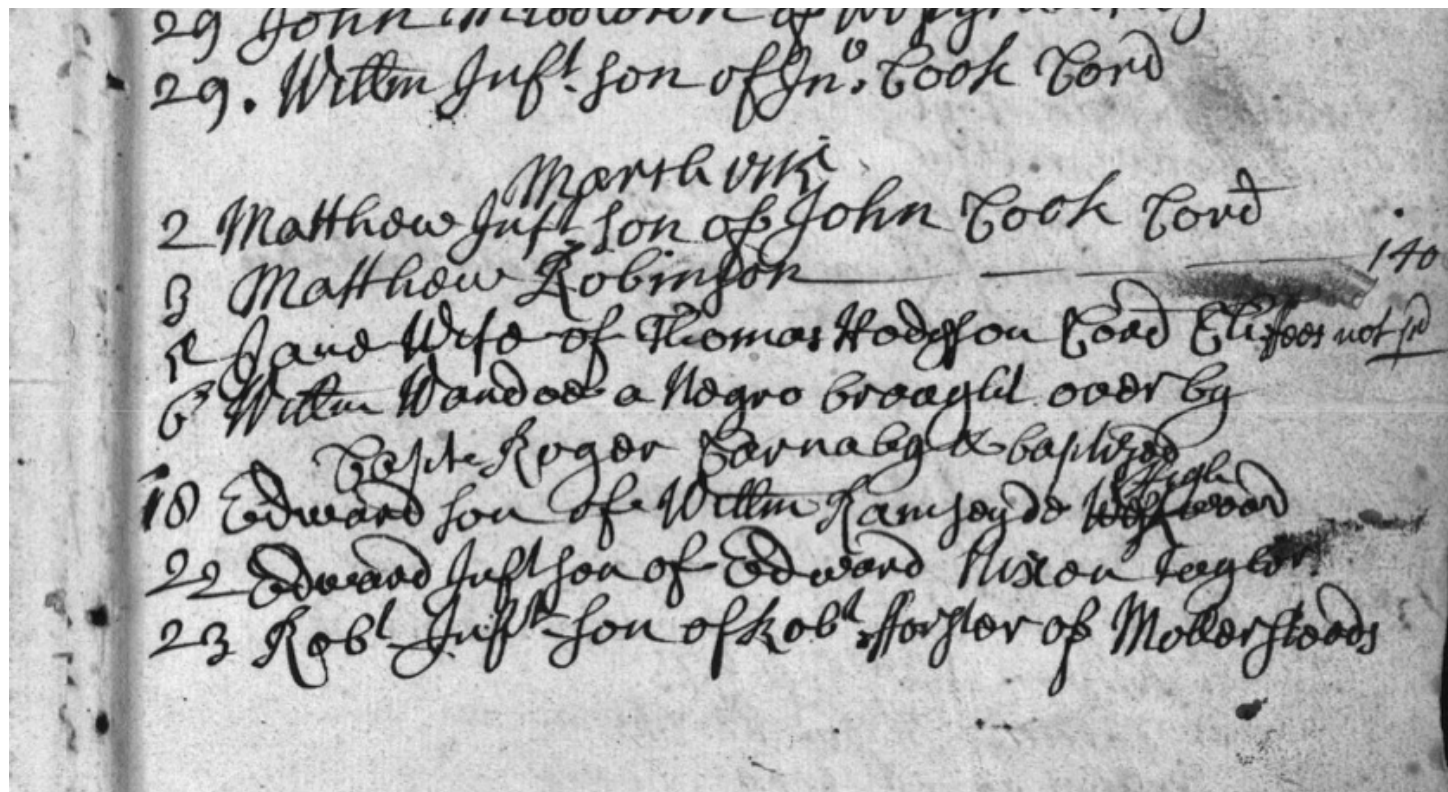 29 John Middleton of
29. Willm Inft. son of Jno. Cook Cord
March
2 Matthew Inft son of John Cook Cord
3 Matthew Robinson 140
5 Jane Wife of Thomas Hodgson Cord fees not pd
6 Willm Wandoe a Negro brought over by
Capt Roger Carnaby & baptized
high
18 Edward son of Willm Ramsey de Westwood
22 Edward Inft son of Edward Nixon taylor
23 Robt Inft son of Robt fforster of Mollersteeds